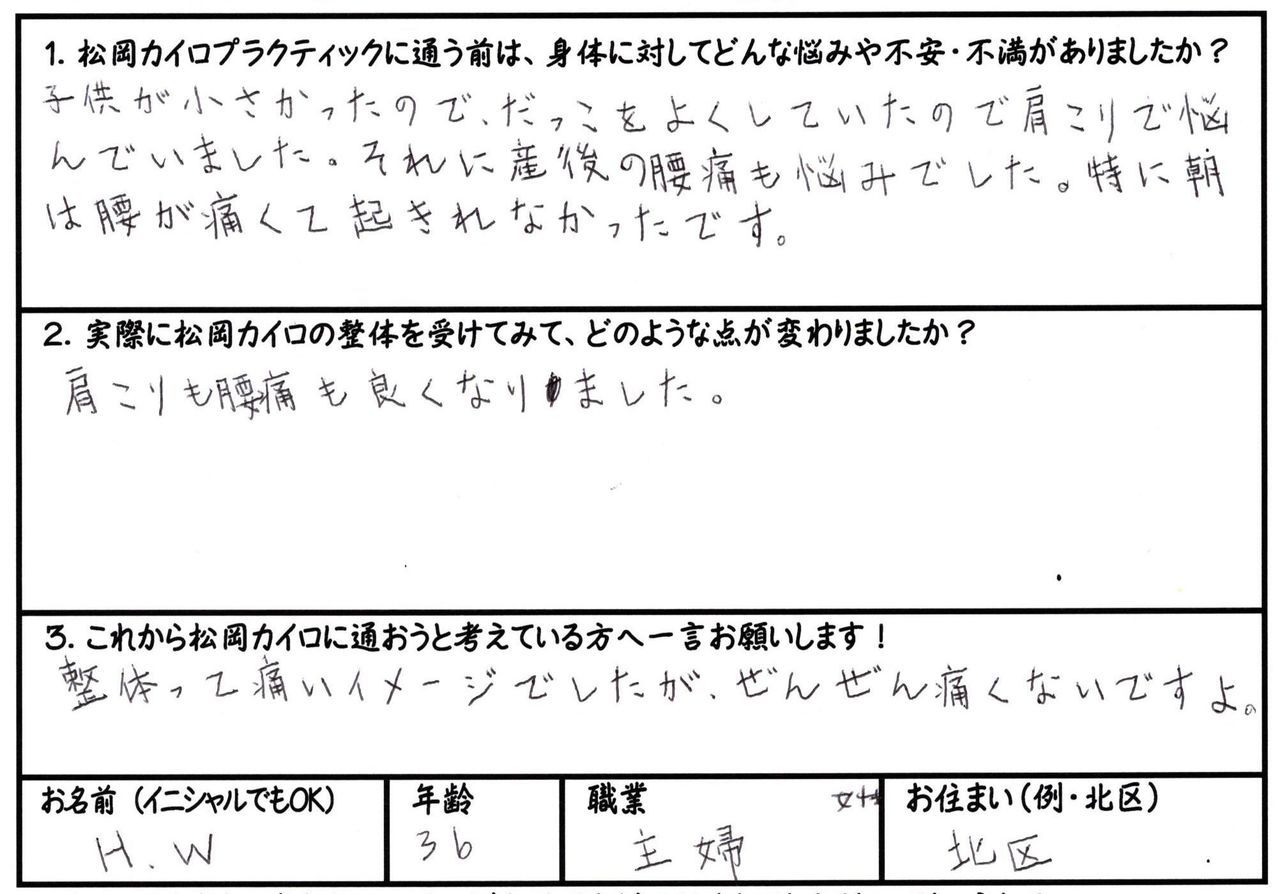 1. 松岡カイロプラクティックに通う前は、身体に対してどんな悩みや不安・不満がありましたか？
子供が小さかったので、だっこをよくしていたので肩こりで悩
んでいました。それに産後の腰痛も悩みでした。特に朝
は腰が痛くて起きれなかったです。
2. 実際に松岡カイロの整体を受けてみて、どのような点が変わりましたか？
肩こりも腰痛も良くなりました。
3. これから松岡カイロに通おうと考えている方へ一言お願いします！
整体って痛いイメージでしたが、ぜんぜん痛くないですよ。
お名前（イニシャルでもOK） 年齢 職業 女性 お住まい（例・北区）
H.W 36 主婦 北区